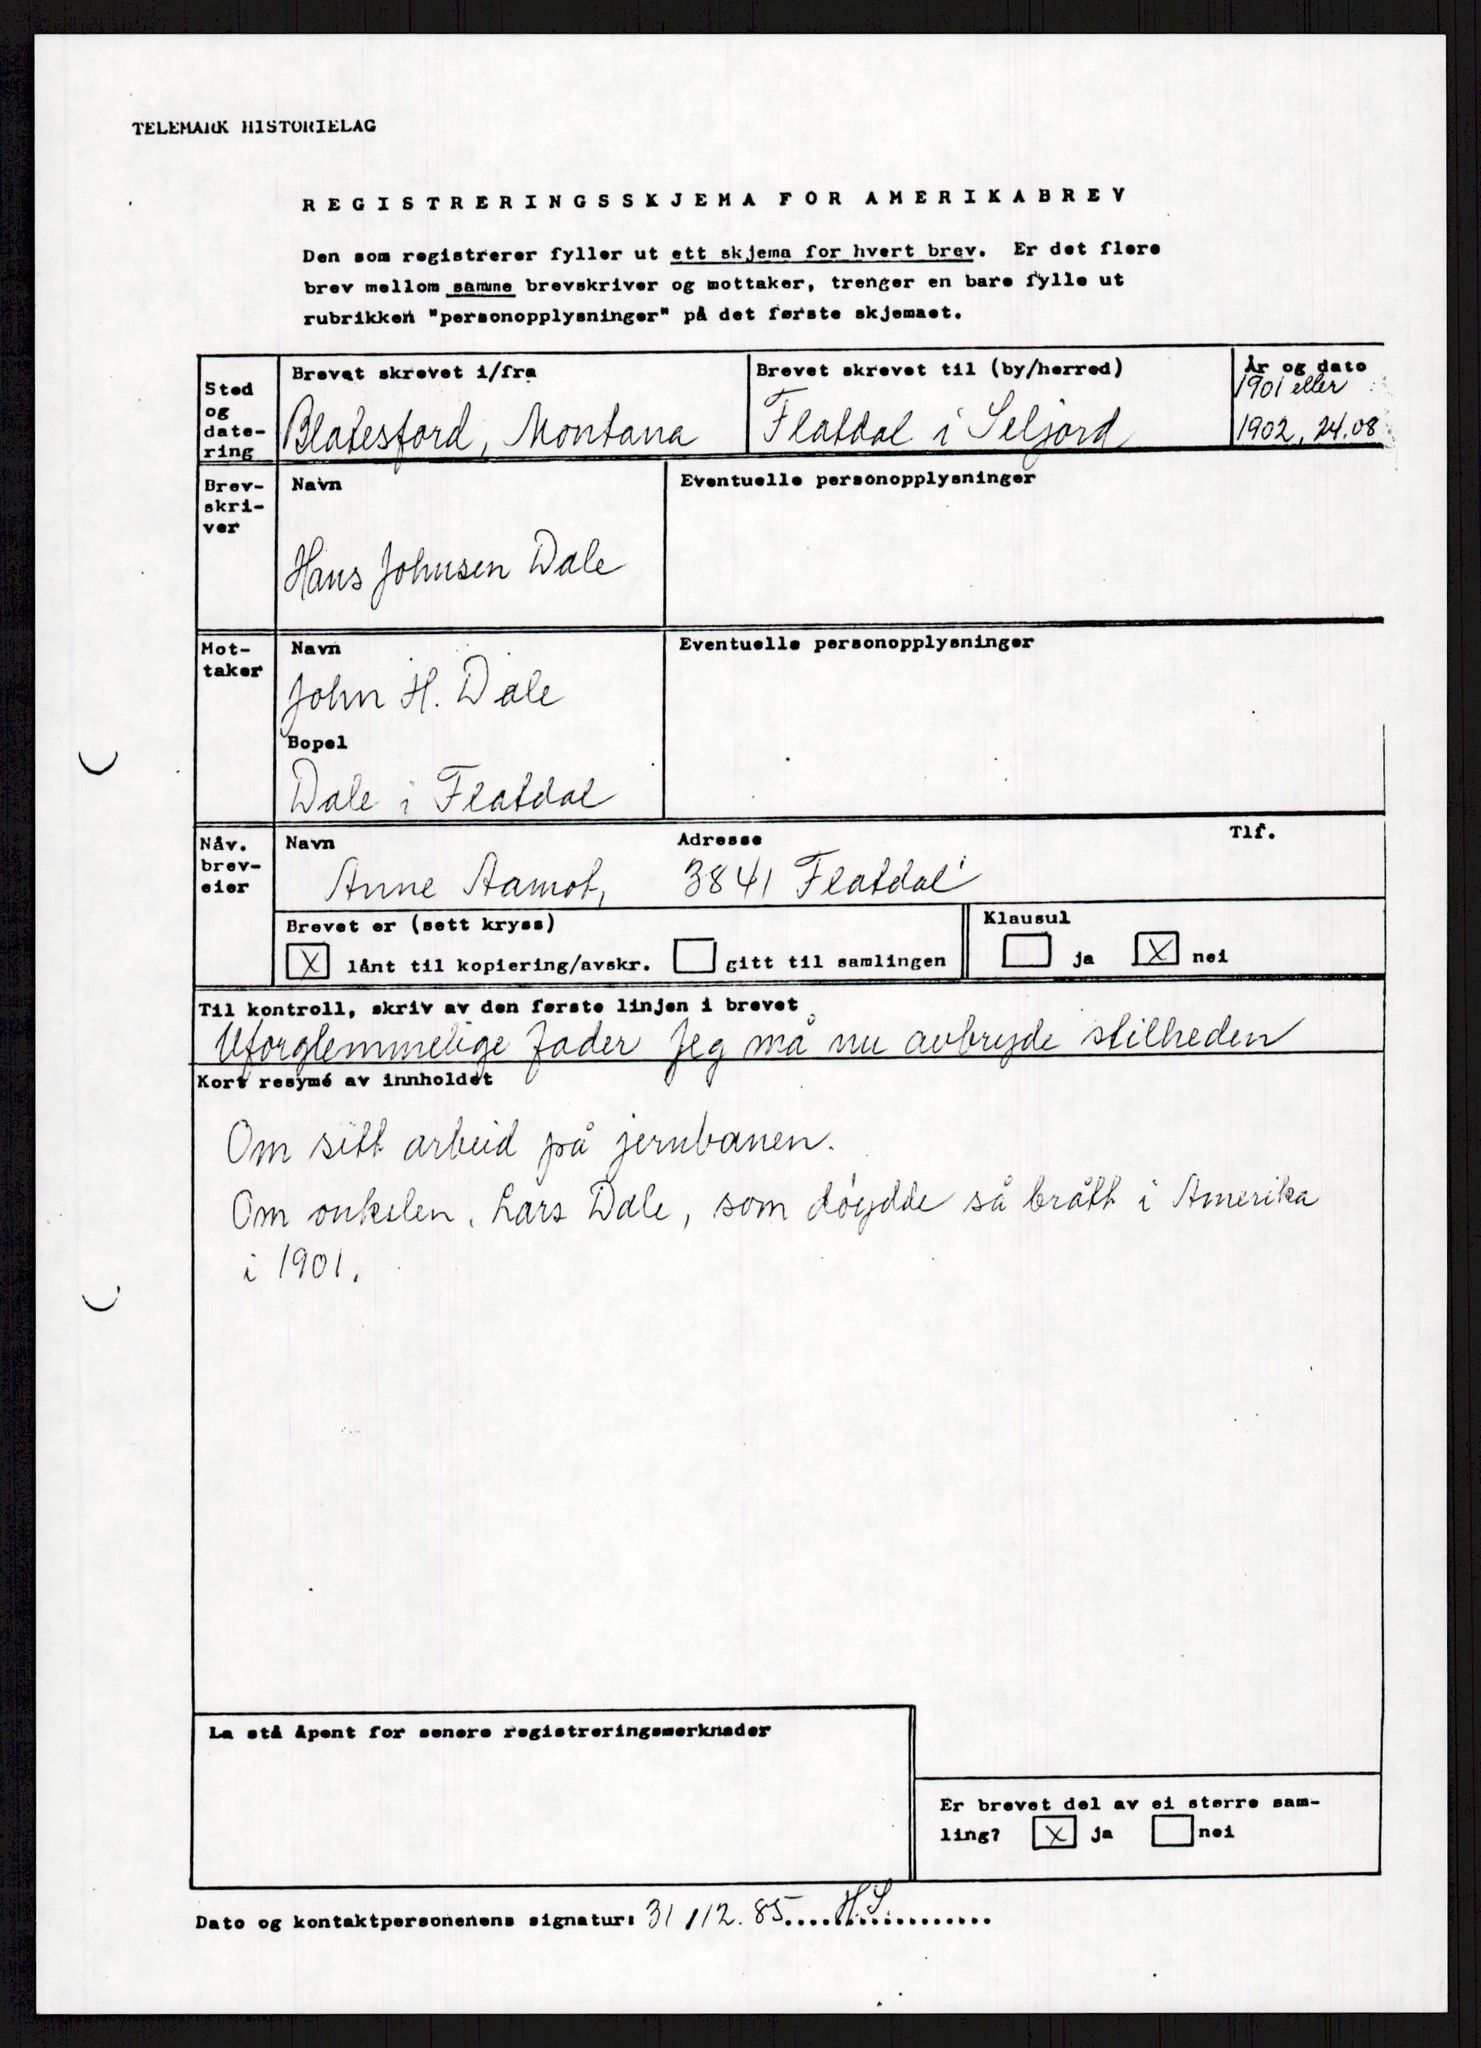 TELEMARK HISTORIELAG
REGISTRERINGSSKJEMA FOR AMERIKABREV
Den som registrerer fyller ut ett skjema for hvert brev. Er det flere
brev mellom samme brevskriver og mottaker, trenger en bare fylle ut
rubrikken "personopplysninger" på det første skjemaet.
Sted og date-ring
Brevet skrevet i/fra
Blatesford, Montana
Brevet skrevet til (by/herred)
Flatdal i Seljord
År og dato
1901 eller
1902, 24.08
Brev-
skri-
ver
Navn
Hans Johnsen Dale
Eventuelle personopplysninger
Mot-
taker
Navn
John H. Dale
Bopel
Dale i Flatdal
Eventuelle personopplysninger
Nåv.
brev-
eier
Navn
Anne Aamot,
Adresse
3841 Flatdal
Tlf.
Brevet er (sett kryss)
X lånt til kopiering/avskr. gitt til samlingen
Klausul
ja X nei
Til kontroll, skriv av den første linjen i brevet
Uforglemmelige Fader Jeg må nu avbryde stilheden
Kort resymé av innholdet
Om sitt arbeid på jernbanen.
Om onkelen, Lars Dale, som døydde så brått i Amerika
i 1901.
La stå åpent for senere registreringsmerknader
Er brevet del av ei større sam-
ling? X ja nei
Dato og kontaktpersonenens signatur: 31/12.85....H.S..................